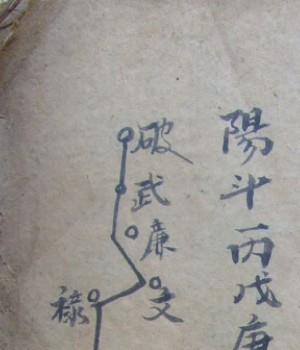 陽斗丙戊庚
破武廉文
祿